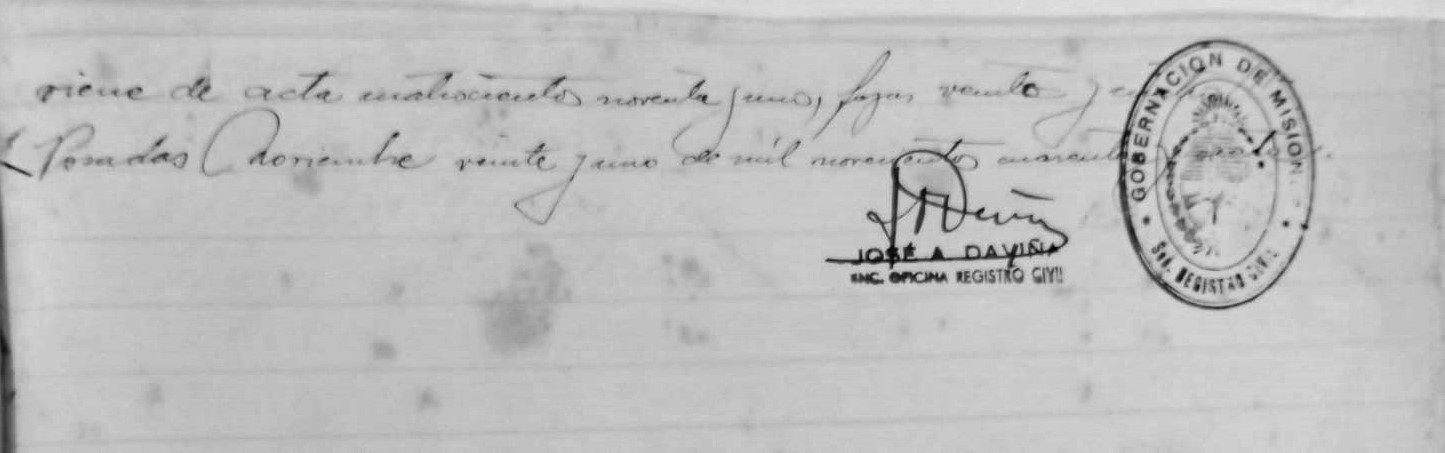 viene de acta cuatrocientos noventa y uno, fojas veinte y
Posadas Noviembre veinte y uno de mil novecientos cuarenta y
JOSÉ A. DAVIÑA
ENC. OFICINA REGISTRO CIVIL
GOBERNACION DE MISIONES
REGISTRO CIVIL